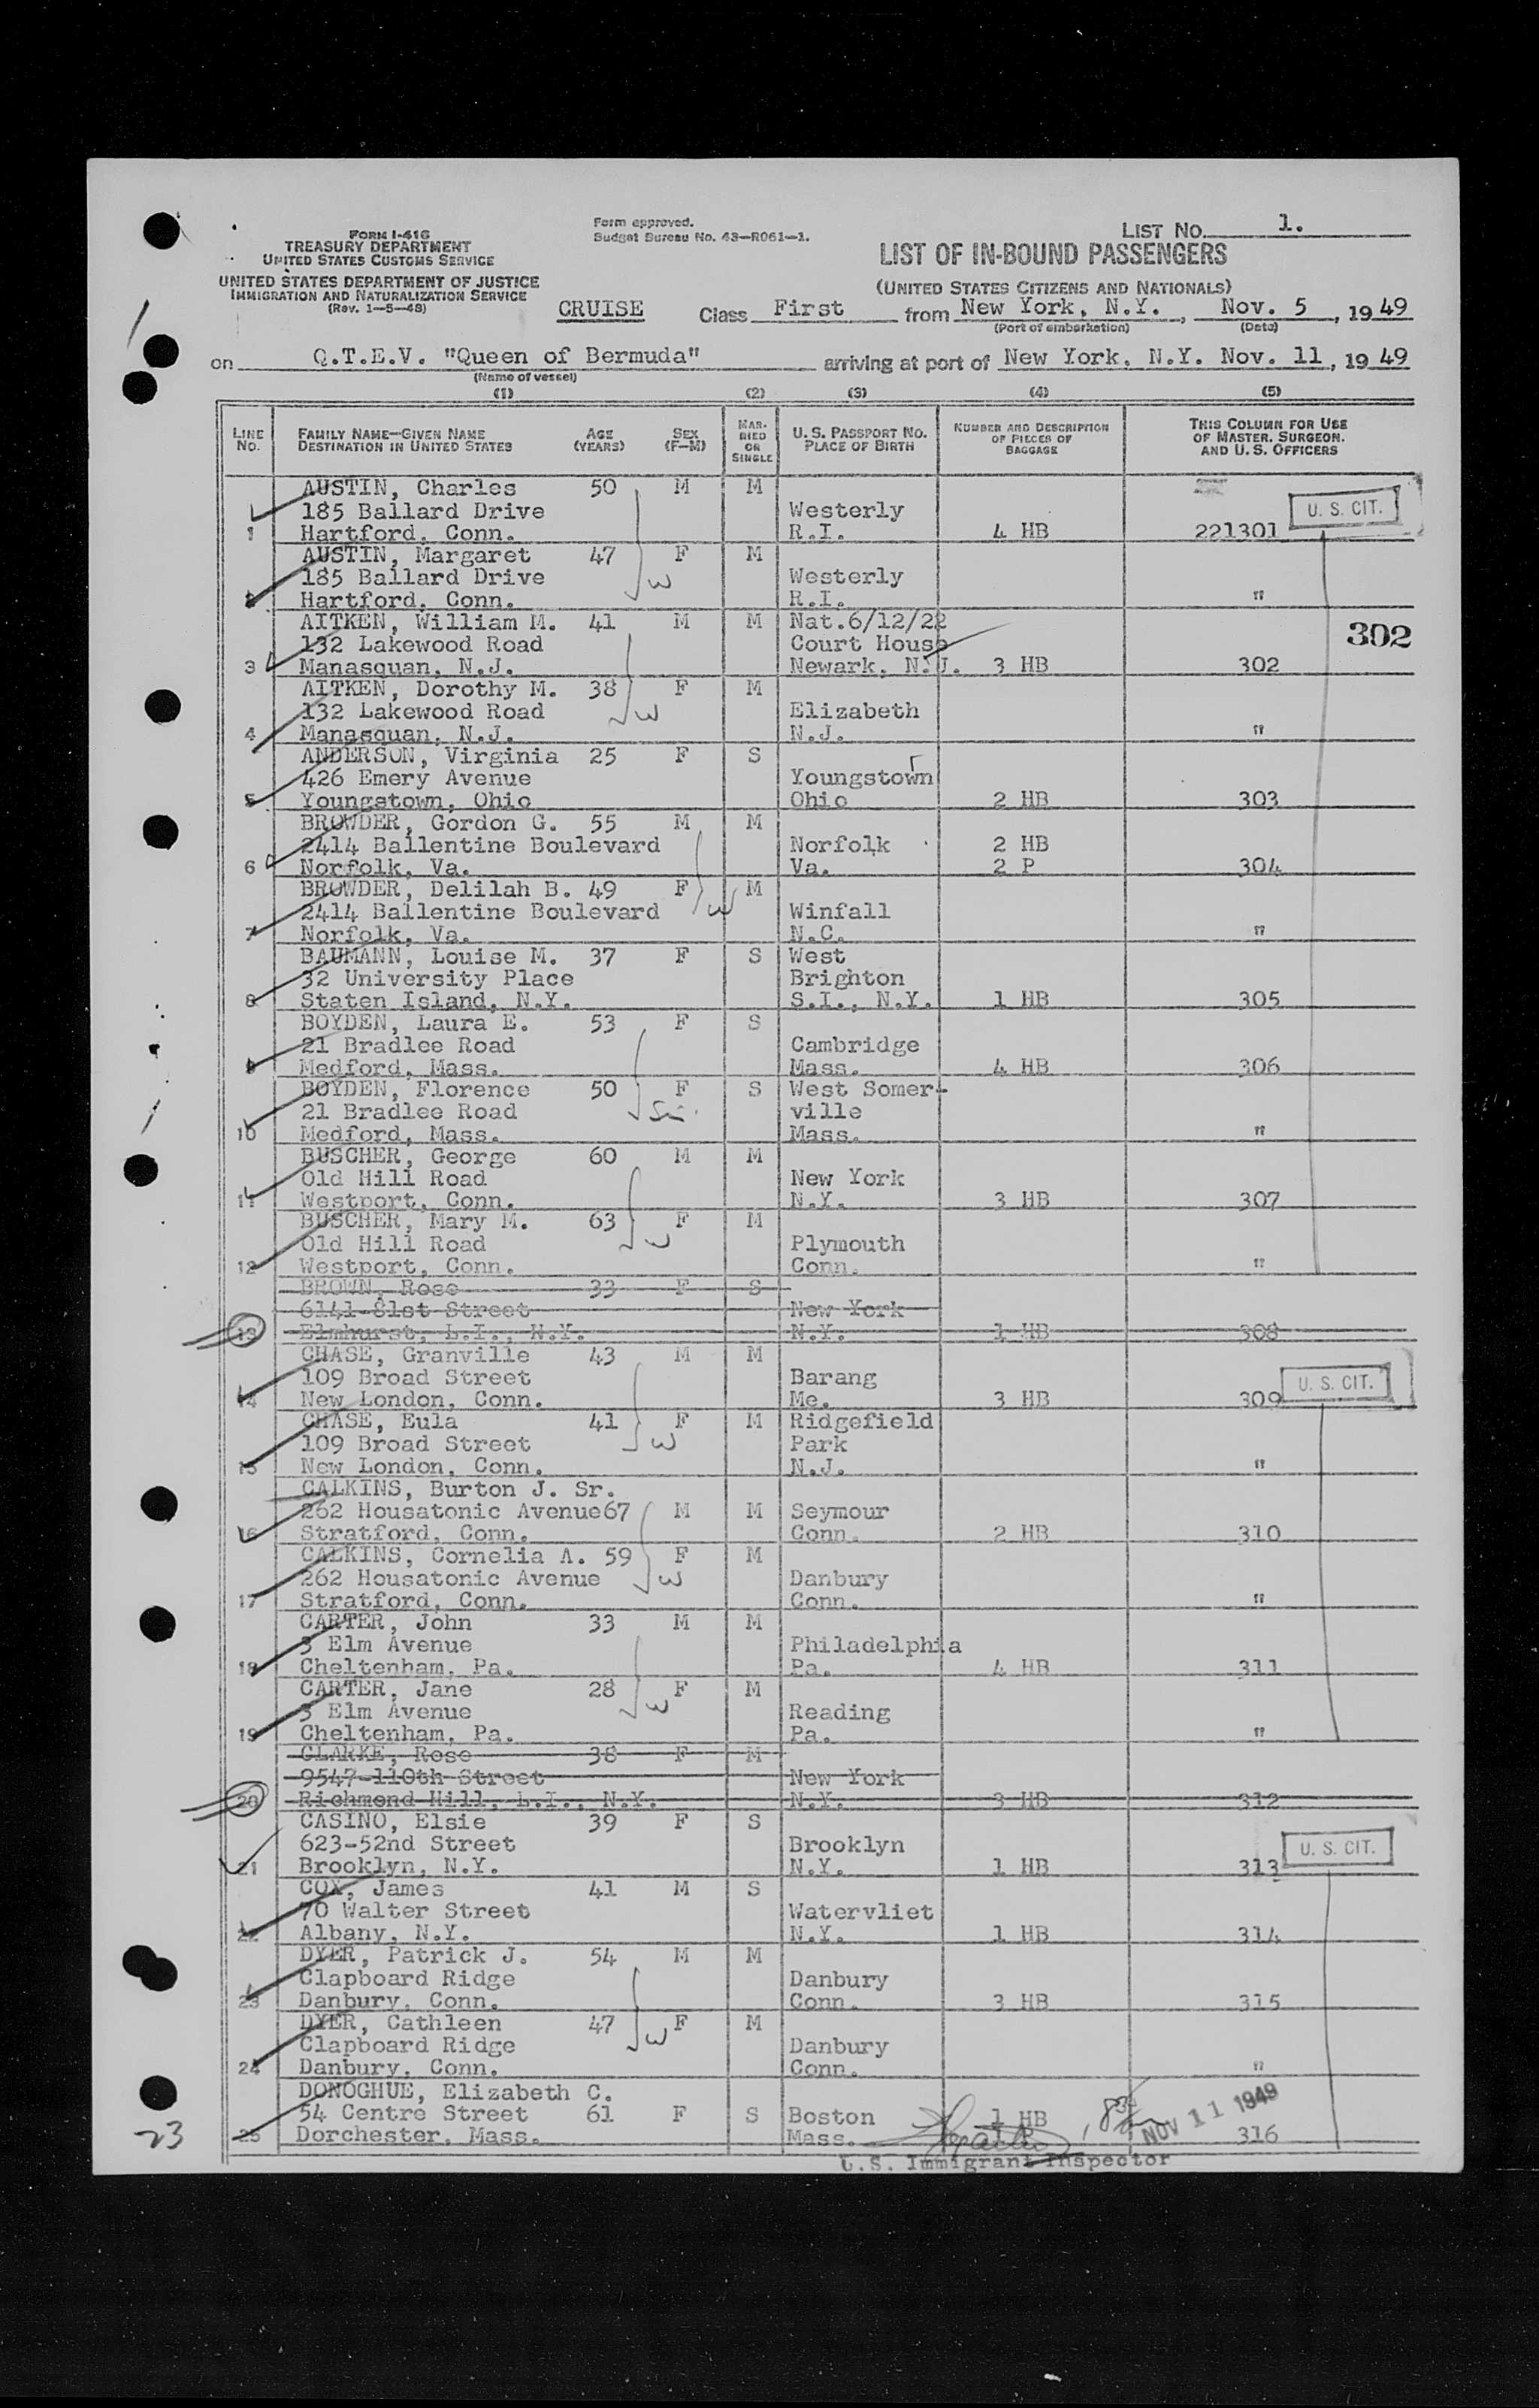 FORM I-416
TREASURY DEPARTMENT
UNITED STATES CUSTOMS SERVICE
UNITED STATES DEPARTMENT OF JUSTICE
IMMIGRATION AND NATURALIZATION SERVICE
(Rev. 1-5-48)
Form approved.
Budget Bureau No. 43-R061-1.
LIST NO. 1.
LIST OF IN-BOUND PASSENGERS
(UNITED STATES CITIZENS AND NATIONALS)
CRUISE Class First from New York, N.Y., Nov. 5, 1949
(Port of embarkation) (Date)
on Q.T.E.V. "Queen of Bermuda" arriving at port of New York, N.Y. Nov. 11, 1949
(Name of vessel)
(1) (2) (3) (4) (5)
LINE NO. FAMILY NAME-GIVEN NAME DESTINATION IN UNITED STATES AGE (YEARS) SEX (F-M) MARRIED OR SINGLE U. S. PASSPORT NO. PLACE OF BIRTH NUMBER AND DESCRIPTION OF PIECES OF BAGGAGE THIS COLUMN FOR USE OF MASTER, SURGEON, AND U. S. OFFICERS
AUSTIN, Charles 50 M M
185 Ballard Drive Westerly U. S. CIT.
1 Hartford, Conn. R.I. 4 HB 221301
AUSTIN, Margaret 47 F M
185 Ballard Drive W Westerly
2 Hartford, Conn. R.I. "
AITKEN, William M. 41 M M Nat.6/12/22
132 Lakewood Road Court House 302
3 Manasquan, N.J. Newark, N.J. 3 HB 302
AITKEN, Dorothy M. 38 F M
132 Lakewood Road W Elizabeth
4 Manasquan, N.J. N.J. "
ANDERSON, Virginia 25 F S
426 Emery Avenue Youngstown
5 Youngstown, Ohio Ohio 2 HB 303
BROWDER, Gordon G. 55 M M
2414 Ballentine Boulevard Norfolk 2 HB
6 Norfolk, Va. Va. 2 P 304
BROWDER, Delilah B. 49 F M
2414 Ballentine Boulevard W Winfall
7 Norfolk, Va. N.C. "
BAUMANN, Louise M. 37 F S West
32 University Place Brighton
8 Staten Island, N.Y. S.I., N.Y. 1 HB 305
BOYDEN, Laura E. 53 F S
21 Bradlee Road Cambridge
9 Medford, Mass. Mass. 4 HB 306
BOYDEN, Florence 50 F S West Somer-
21 Bradlee Road Sis. ville
10 Medford, Mass. Mass. "
BUSCHER, George 60 M M
Old Hill Road New York
11 Westport, Conn. N.Y. 3 HB 307
BUSCHER, Mary M. 63 F M
Old Hill Road W Plymouth
12 Westport, Conn. Conn. "
BROWN, Rose 33 F S
6141-81st Street New York
13 Elmhurst, L.I., N.Y. N.Y. 1 HB 308
CHASE, Granville 43 M M
109 Broad Street Barang U. S. CIT.
14 New London, Conn. Me. 3 HB 309
CHASE, Eula 41 F M Ridgefield
109 Broad Street W Park
15 New London, Conn. N.J. "
CALKINS, Burton J. Sr.
262 Housatonic Avenue67 M M Seymour
16 Stratford, Conn. Conn. 2 HB 310
CALKINS, Cornelia A. 59 F M
262 Housatonic Avenue W Danbury
17 Stratford, Conn. Conn. "
CARTER, John 33 M M
3 Elm Avenue Philadelphia
18 Cheltenham, Pa. Pa. 4 HB 311
CARTER, Jane 28 F M
3 Elm Avenue W Reading
19 Cheltenham, Pa. Pa. "
CLARKE, Rose 38 F M
9547-110th Street New York
20 Richmond Hill, L.I., N.Y. N.Y. 3 HB 312
CASINO, Elsie 39 F S
623-52nd Street Brooklyn U. S. CIT.
21 Brooklyn, N.Y. N.Y. 1 HB 313
COX, James 41 M S
70 Walter Street Watervliet
22 Albany, N.Y. N.Y. 1 HB 314
DYER, Patrick J. 54 M M
Clapboard Ridge Danbury
23 Danbury, Conn. Conn. 3 HB 315
DYER, Cathleen 47 F M
Clapboard Ridge W Danbury
24 Danbury, Conn. Conn. "
DONOGHUE, Elizabeth C.
54 Centre Street 61 F S Boston 1 HB NOV 11 1949
23 25 Dorchester, Mass. Mass. 316
U.S. Immigrant Inspector